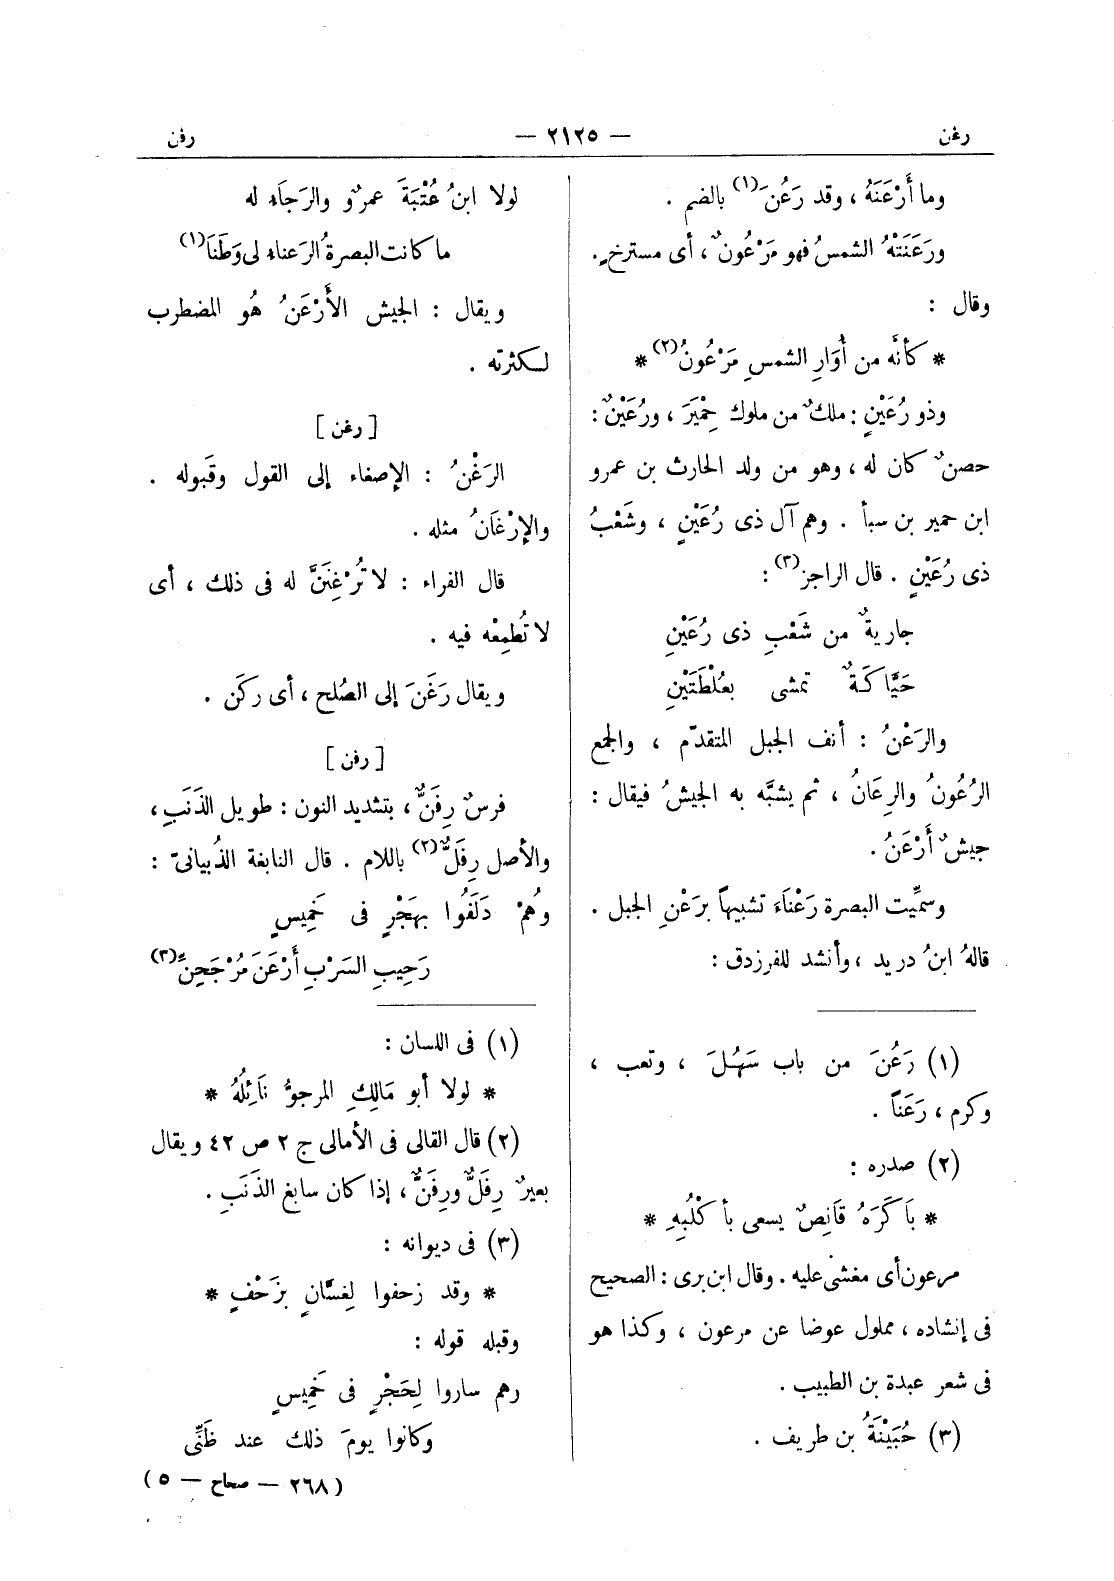 رغن — ٢١٢٥ — رفن
وما أَرْعَنَهُ ، وقد رَعُنَ(١) بالضم .
ورَعَنَتْهُ الشمسُ فهو مَرْعُونٌ ، أى مسترخٍ .
وقال :
* كأنَّه من أُوَارِ الشمسِ مَرْعُونُ(٢) *
وذو رُعَيْنٍ : ملكٌ من ملوك حِمْيَرَ ، ورُعَيْنٌ :
حصنٌ كان له ، وهو من ولد الحارث بن عمرو
ابن حمير بن سبأ . وهم آل ذى رُعَيْنٍ ، وشَعْبُ
ذى رُعَيْنٍ . قال الراجز(٣) :
جاريةٌ من شَعْبِ ذى رُعَيْنِ
حَيَّاكَةٌ تمشى بعُلْطَتَيْنِ
والرَعْنُ : أنف الجبل المتقدّم ، والجمع
الرُعُونُ والرِعَانُ ، ثم يشبَّه به الجيشُ فيقال :
جيشٌ أَرْعَنُ .
وسمِّيت البصرة رَعْنَاءَ تشبيهاً برَعْنِ الجبل .
قالهُ ابنُ دريد ، وأنشد للفرزدق :
(١) رَعُنَ من باب سَهُلَ ، وتعب ،
وكرم ، رَعَناً .
(٢) صدره :
* بَاكَرَهُ قَانِصٌ يسعى بأكْلُبِهِ *
مرعون أى مغشى عليه . وقال ابن برى : الصحيح
فى إنشاده ، مملول عوضا عن مرعون ، وكذا هو
فى شعر عبدة بن الطبيب .
(٣) حُبَيْنَةُ بن طريف .
لولا ابنُ عُتْبَةَ عمرٌو والرَجاَء له
ما كانت البصرةُ الرَعناء لى وَطَنَا(١)
ويقال : الجيش الأَرْعَنُ هُو المضطرب
لكثرته .
[ رغن ]
الرَغْنُ : الإصغاء إلى القول وقَبوله .
والإرْغَانُ مثله .
قال الفراء : لا تُرْغِنَنَّ له فى ذلك ، أى
لا تُطمِعْه فيه .
ويقال رَغَنَ إلى الصُلح ، أى ركَن .
[ رفن ]
فرسٌ رِفَنٌّ ، بتشديد النون : طويل الذَنَبِ ،
والأصل رِفَلٌّ(٢) باللام . قال النابغة الذُبيانىّ :
وهُمْ دَلَفُوا بهَجْرٍ فى خَمِيسٍ
رَحِيبِ السَرْبِ أَرْعَنَ مُرْجَحِنِّ(٣)
(١) فى اللسان :
* لولا أبو مَالِكِ المرجوُّ نَائِلُهُ *
(٢) قال القالى فى الأمالى ج ٢ ص ٤٢ ويقال
بعيرٌ رِفَلٌّ ورِفَنٌّ ، إذا كان سابغ الذَنَبِ .
(٣) فى ديوانه :
* وقد زحفوا لِغسَّانٍ بزَحْفٍ *
وقبله قوله :
رهم ساروا لِحَجْرٍ فى خَمِيسٍ
وكانوا يومَ ذلك عند ظَنِّى
( ٢٦٨ — صحاح — ٥ )